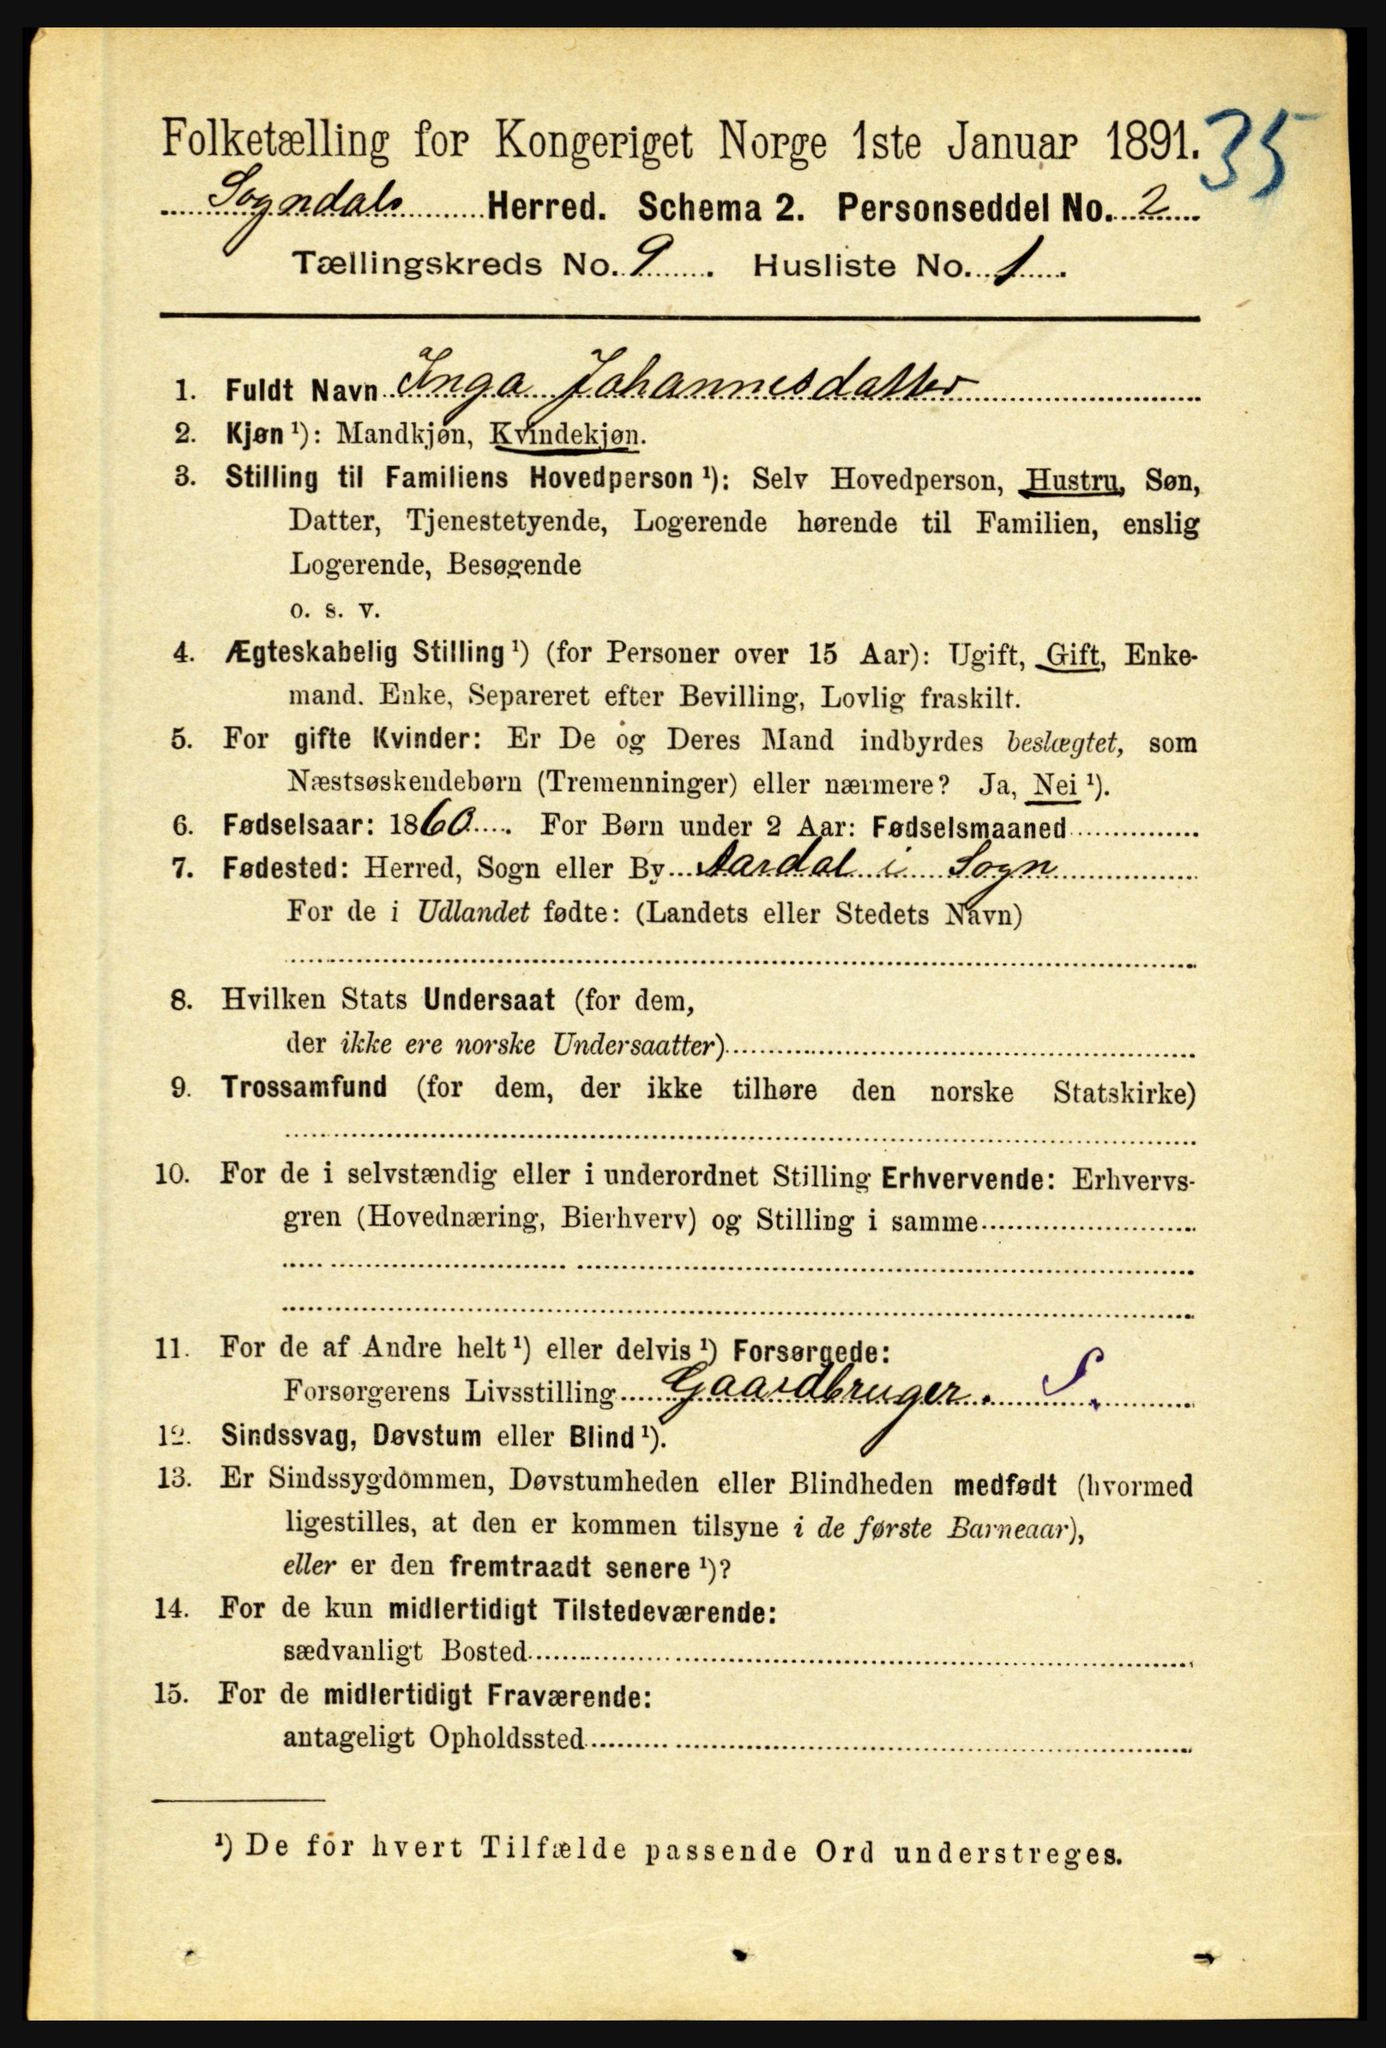 35
Folketælling for Kongeriget Norge 1ste Januar 1891.
Sogndals Herred. Schema 2. Personseddel No. 2
Tællingskreds No. 9. Husliste No. 1.
1. Fuldt Navn Inga Johannesdatter
2. Kjøn ¹): Mandkjøn, Kvindekjøn.
3. Stilling til Familiens Hovedperson ¹): Selv Hovedperson, Hustru, Søn,
Datter, Tjenestetyende, Logerende hørende til Familien, enslig
Logerende, Besøgende
o. s. v.
4. Ægteskabelig Stilling ¹) (for Personer over 15 Aar): Ugift, Gift, Enke-
mand. Enke, Separeret efter Bevilling, Lovlig fraskilt.
5. For gifte Kvinder: Er De og Deres Mand indbyrdes beslægtet, som
Næstsøskendebørn (Tremenninger) eller nærmere? Ja, Nei ¹).
6. Fødselsaar: 1860. For Børn under 2 Aar: Fødselsmaaned
7. Fødested: Herred, Sogn eller By Aardal i Sogn
For de i Udlandet fødte: (Landets eller Stedets Navn)
8. Hvilken Stats Undersaat (for dem,
der ikke ere norske Undersaatter)
9. Trossamfund (for dem, der ikke tilhøre den norske Statskirke)
10. For de i selvstændig eller i underordnet Stilling Erhvervende: Erhvervs-
gren (Hovednæring, Bierhverv) og Stilling i samme
11. For de af Andre helt ¹) eller delvis ¹) Forsørgede:
Forsørgerens Livsstilling Gaardbruger. S.
12. Sindssvag, Døvstum eller Blind ¹).
13. Er Sindssygdommen, Døvstumheden eller Blindheden medfødt (hvormed
ligestilles, at den er kommen tilsyne i de første Barneaar),
eller er den fremtraadt senere ¹)?
14. For de kun midlertidigt Tilstedeværende:
sædvanligt Bosted
15. For de midlertidigt Fraværende:
antageligt Opholdssted
¹) De for hvert Tilfælde passende Ord understreges.